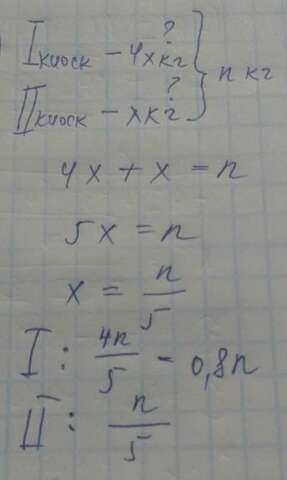 I киоск – 4x кг ? } n кг
II киоск – x кг ?
4x + x = n
5x = n
x = n/5
I : 4n/5 - 0,8n
II : n/5